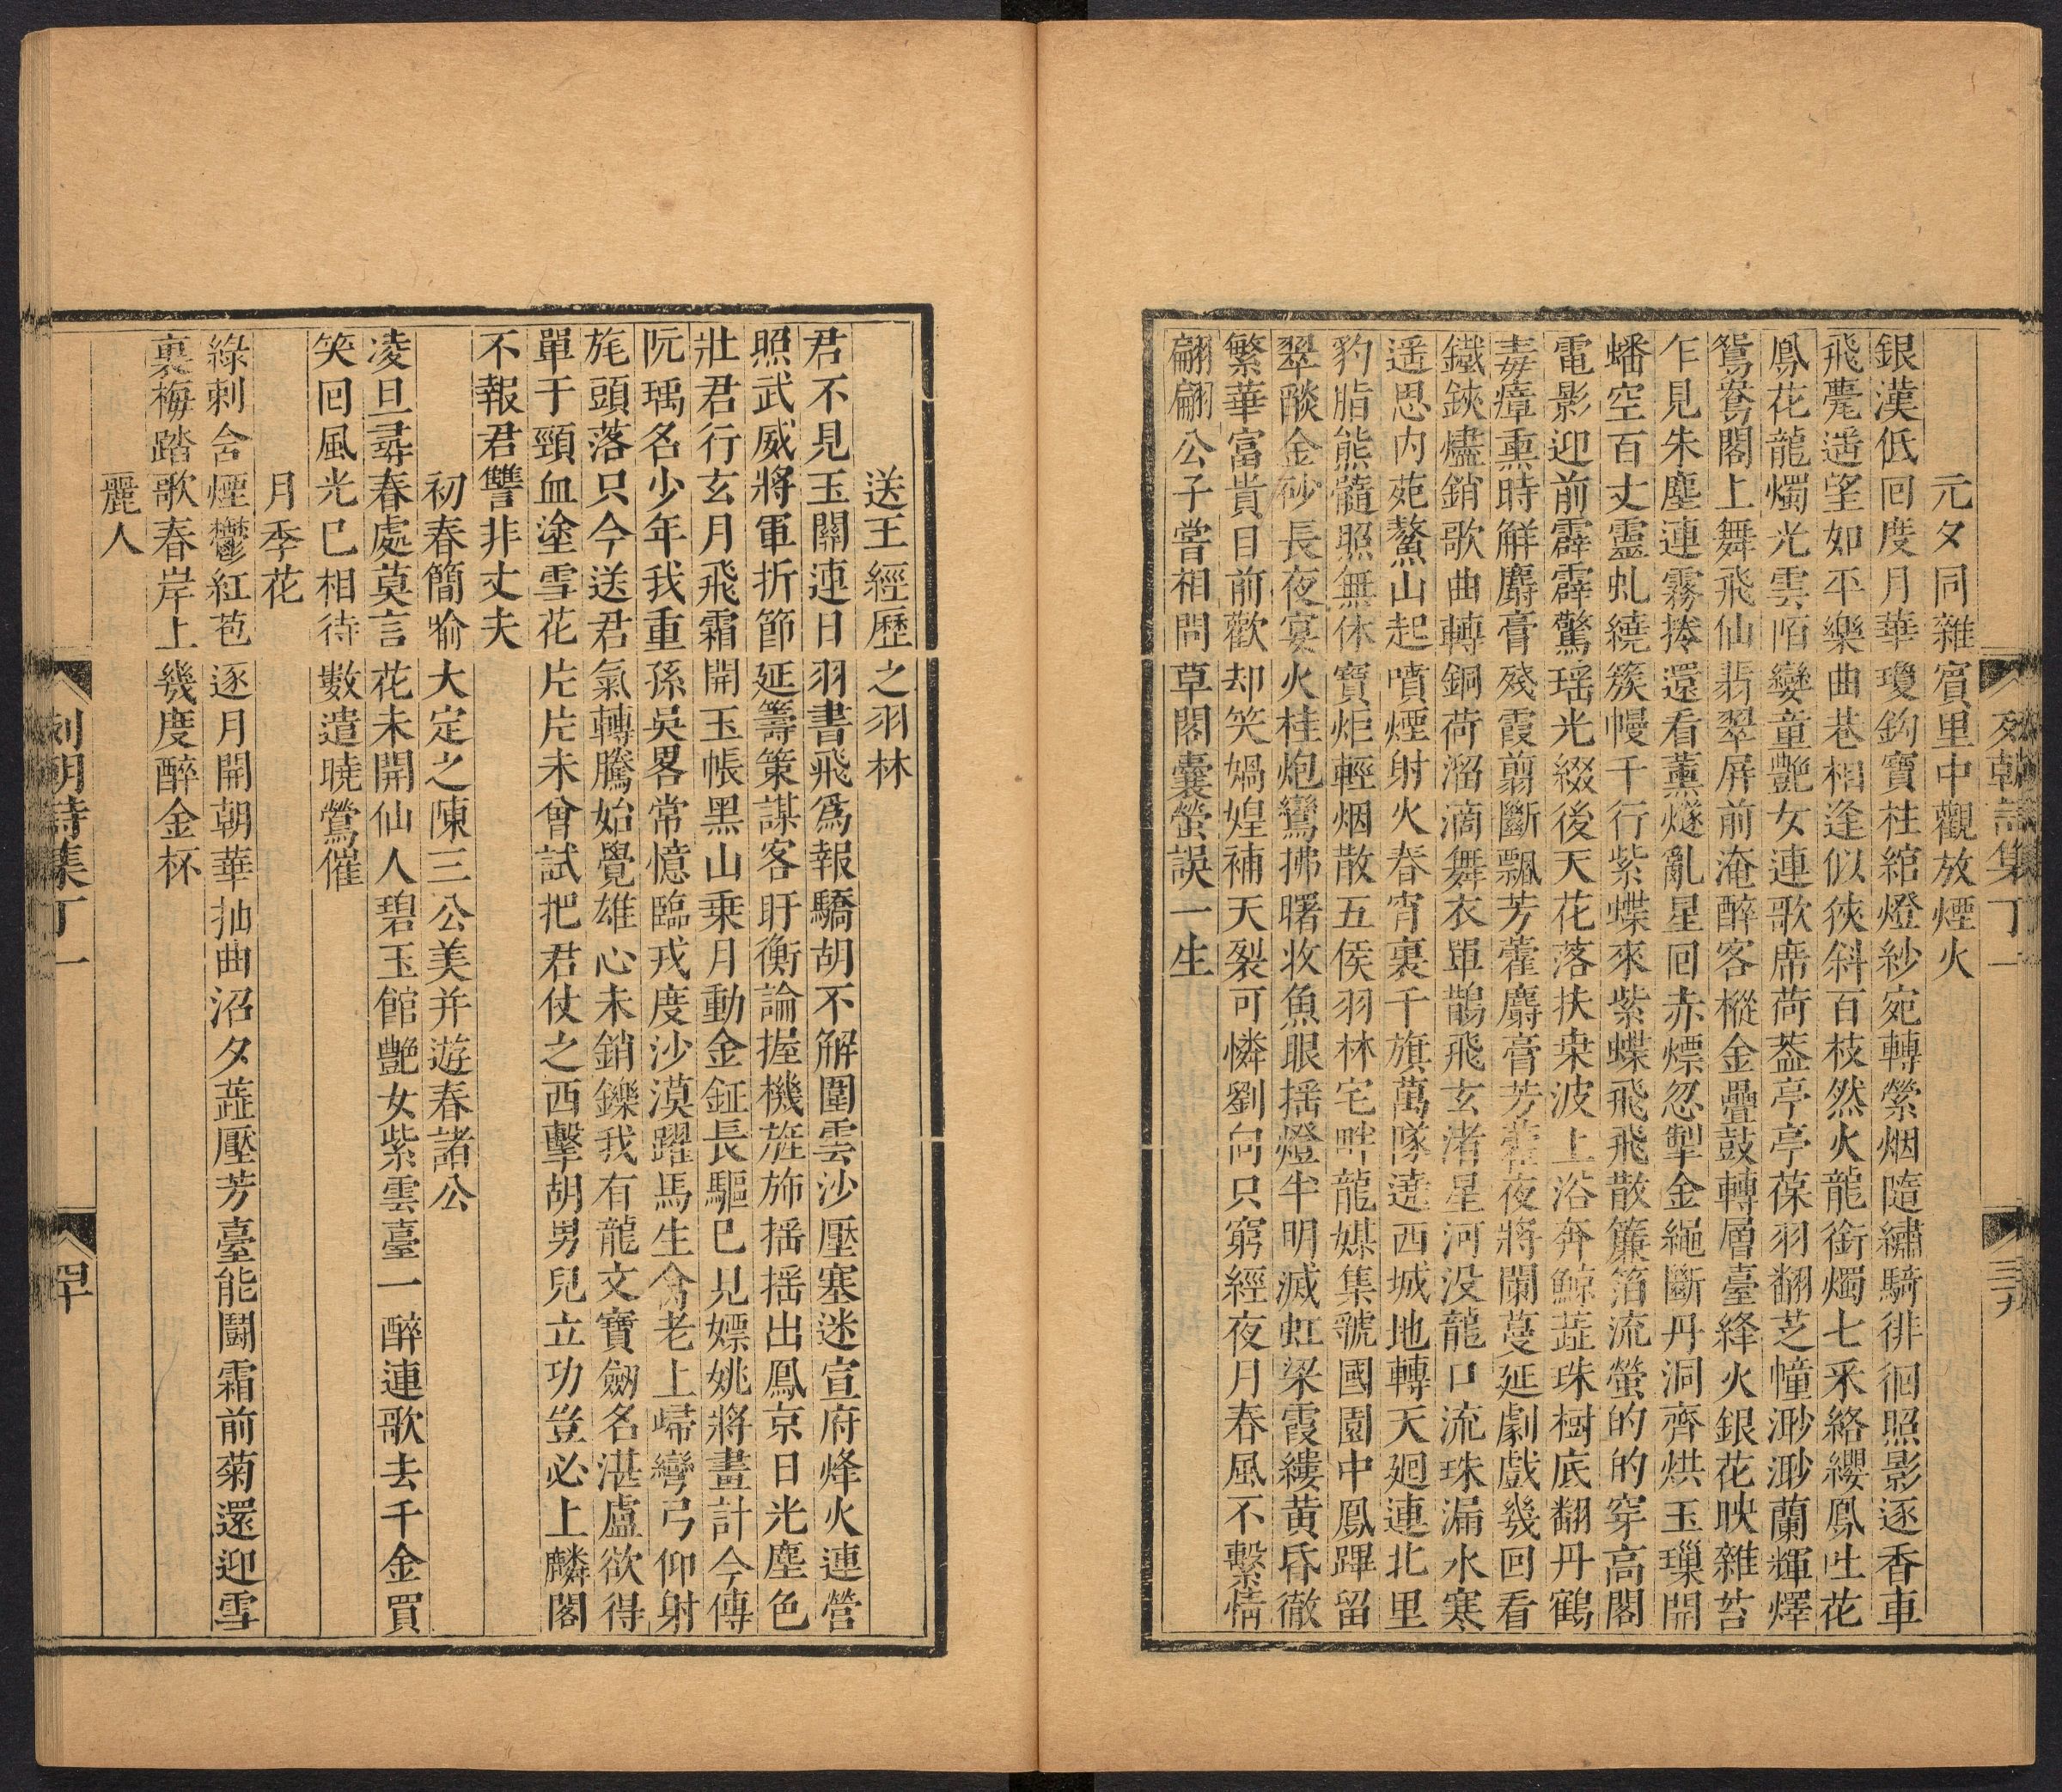 列朝詩集丁一
三九
元夕同雜賓里中觀放煙火
銀漢低回度月華瓊鉤寶柱綰燈紗宛轉縈烟隨繡騎徘徊照影逐香車
飛甍遥望如平樂曲巷相逢似狹斜百枝然火龍銜燭七釆絡纓鳳吐花
鳳花龍燭光雲陌孌童艷女連歌席荷葢亭亭葆羽翻芝幢渺渺蘭輝燡
鴛鴦閣上舞飛仙翡翠屏前淹醉客樅金疊鼓轉層臺絳火銀花映雜苔
乍見朱塵連霧捲還看薰燧亂星回赤熛忽掣金繩斷丹洞齊烘玉璅開
蟠空百丈靈虬繞簇幔千行紫蝶來紫蝶飛飛散簾箔流螢的的穿高閣
電影迎前霹靂驚瑶光綴後天花落扶桒波上浴奔鯨蕋珠樹底翻丹鶴
毒瘴熏時解麝膏殘霞翦斷飄芳藿麝膏芳藿夜將闌蔓延劇戲幾回看
鐵鋏燼銷歌曲轉銅荷溜滴舞衣單鵲飛玄渚星河没龍口流珠漏水寒
遥思内苑鰲山起噴煙射火春宵裏千旗萬隊遶西城地轉天廻連北里
豹脂熊髓照無休寶炬輕烟散五侯羽林宅畔龍媒集虢國園中鳳蹕留
翠醆金砂長夜宴火桂炮鸞拂曙收魚眼揺燈半明滅虹梁霞縷黄昏徹
繁華富貴日前歡却笑媧媓補天裂可憐劉向只窮經夜月春風不繫情
翩翩公子嘗相問草閣囊螢誤一生
送王經歷之羽林
君不見玉關連日羽書飛爲報驕胡不解圍雲沙壓塞迷宣府烽火連營
照武威將軍折節延籌策謀客盱衡論握機旌斾揺揺出鳳京日光塵色
壯君行玄月飛霜開玉帳黑山乗月動金鉦長驅巳見嫖姚將畫計今傳
阮瑀名少年我重孫吳畧常憶臨戎度沙漠躍馬生禽老上歸彎弓仰射
旄頭落只今送君氣轉騰始覺雄心未銷鑠我有龍文寶劒名湛盧欲得
單于頸血塗雪花片片未曾試把君仗之西擊胡男兒立功豈必上麟閣
不報君讐非丈夫
初春簡喻大定之陳三公美并遊春諸公
凌旦尋春處莫言花未開仙人碧玉館艷女紫雲臺一醉連歌去千金買
笑回風光巳相待數遣曉鶯催
月季花
綠刺含煙鬱紅苞逐月開朝華抽曲沼夕蕋壓芳臺能鬪霜前菊還迎雪
裏梅踏歌春岸上幾度醉金杯
麗人
列朝詩集丁一
四十